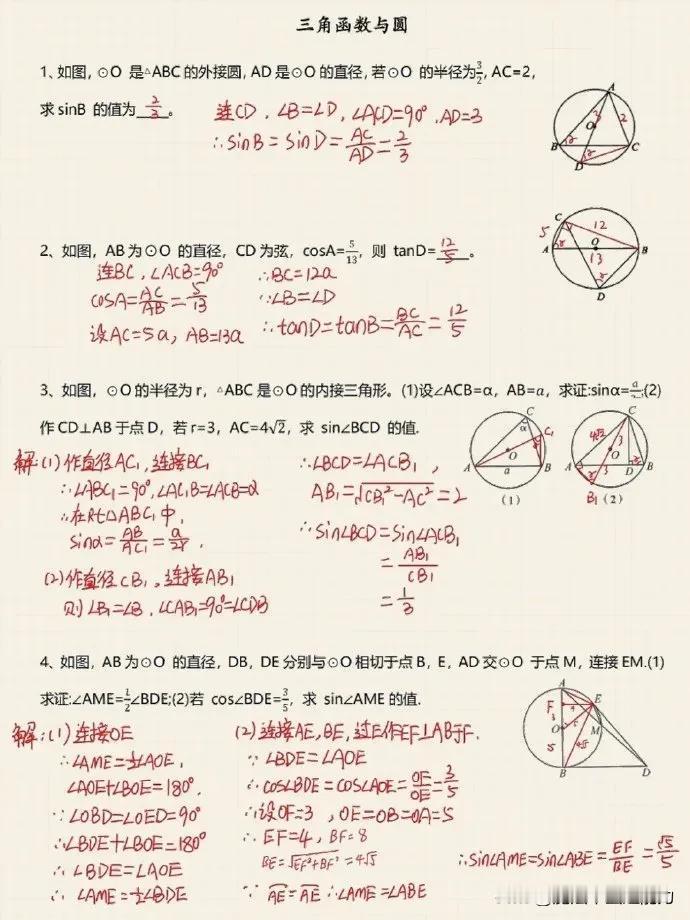 三角函数与圆
1、如图，⊙O 是△ABC的外接圆，AD是⊙O的直径，若⊙O 的半径为3/2，AC=2，
求sinB 的值为 2/3 。
连CD，∠B=∠D，∠ACD=90°，AD=3
∴sinB=sinD=AC/AD=2/3
A
3
2
O
B
C
D
2、如图，AB为⊙O 的直径，CD为弦，cosA=5/13，则 tanD= 12/5 。
连BC，∠ACB=90°
cosA=AC/AB=5/13
设AC=5a，AB=13a
∴BC=12a
∵∠B=∠D
∴tanD=tanB=BC/AC=12/5
C
5
12
A
O
B
13
D
3、如图，⊙O的半径为r，△ABC是⊙O的内接三角形。(1)设∠ACB=α，AB=a，求证:sinα=a/;(2)
作CD⊥AB于点D，若r=3，AC=4√2，求 sin∠BCD 的值.
解:(1)作直径AC₁，连接BC₁
∴∠ABC₁=90°，∠AC₁B=∠ACB=α
∴在Rt△ABC₁中，
sinα=AB/AC₁=a/2r.
(2)作直径CB₁，连接AB₁
则∠B₁=∠B，∠CAB₁=90°=∠CDB
∴∠BCD=∠ACB₁，
AB₁=√CB₁²-AC²=2
∴sin∠BCD=sin∠ACB₁
=AB₁/CB₁
=1/3
C
α
C₁
O
A
a
B
(1)
C
4√2
3
O
A
3
D
B
B₁
(2)
4、如图，AB为⊙O 的直径，DB，DE分别与⊙O相切于点B，E，AD交⊙O 于点M，连接EM.(1)
求证:∠AME=1/2∠BDE;(2)若 cos∠BDE=3/5，求 sin∠AME的值.
解:(1)连接OE
∴∠AME=½∠AOE，
∠AOE+∠BOE=180°.
∵∠OBD=∠OED=90°
∴∠BDE+∠BOE=180°
∴∠BDE=∠AOE
∴∠AME=½∠BDE
(2)连接AE，BE，过E作EF⊥AB于F.
∵∠BDE=∠AOE
∴cos∠BDE=cos∠AOE=OF/OE=3/5
∴设OF=3，OE=OB=OA=5
∴EF=4，BF=8
BE=√EF²+BF²=4√5
∵AE=AE ∴∠AME=∠ABE
∴sin∠AME=sin∠ABE=EF/BE=√5/5
A
F
4
E
3
5
M
O
5
4√5
B
D